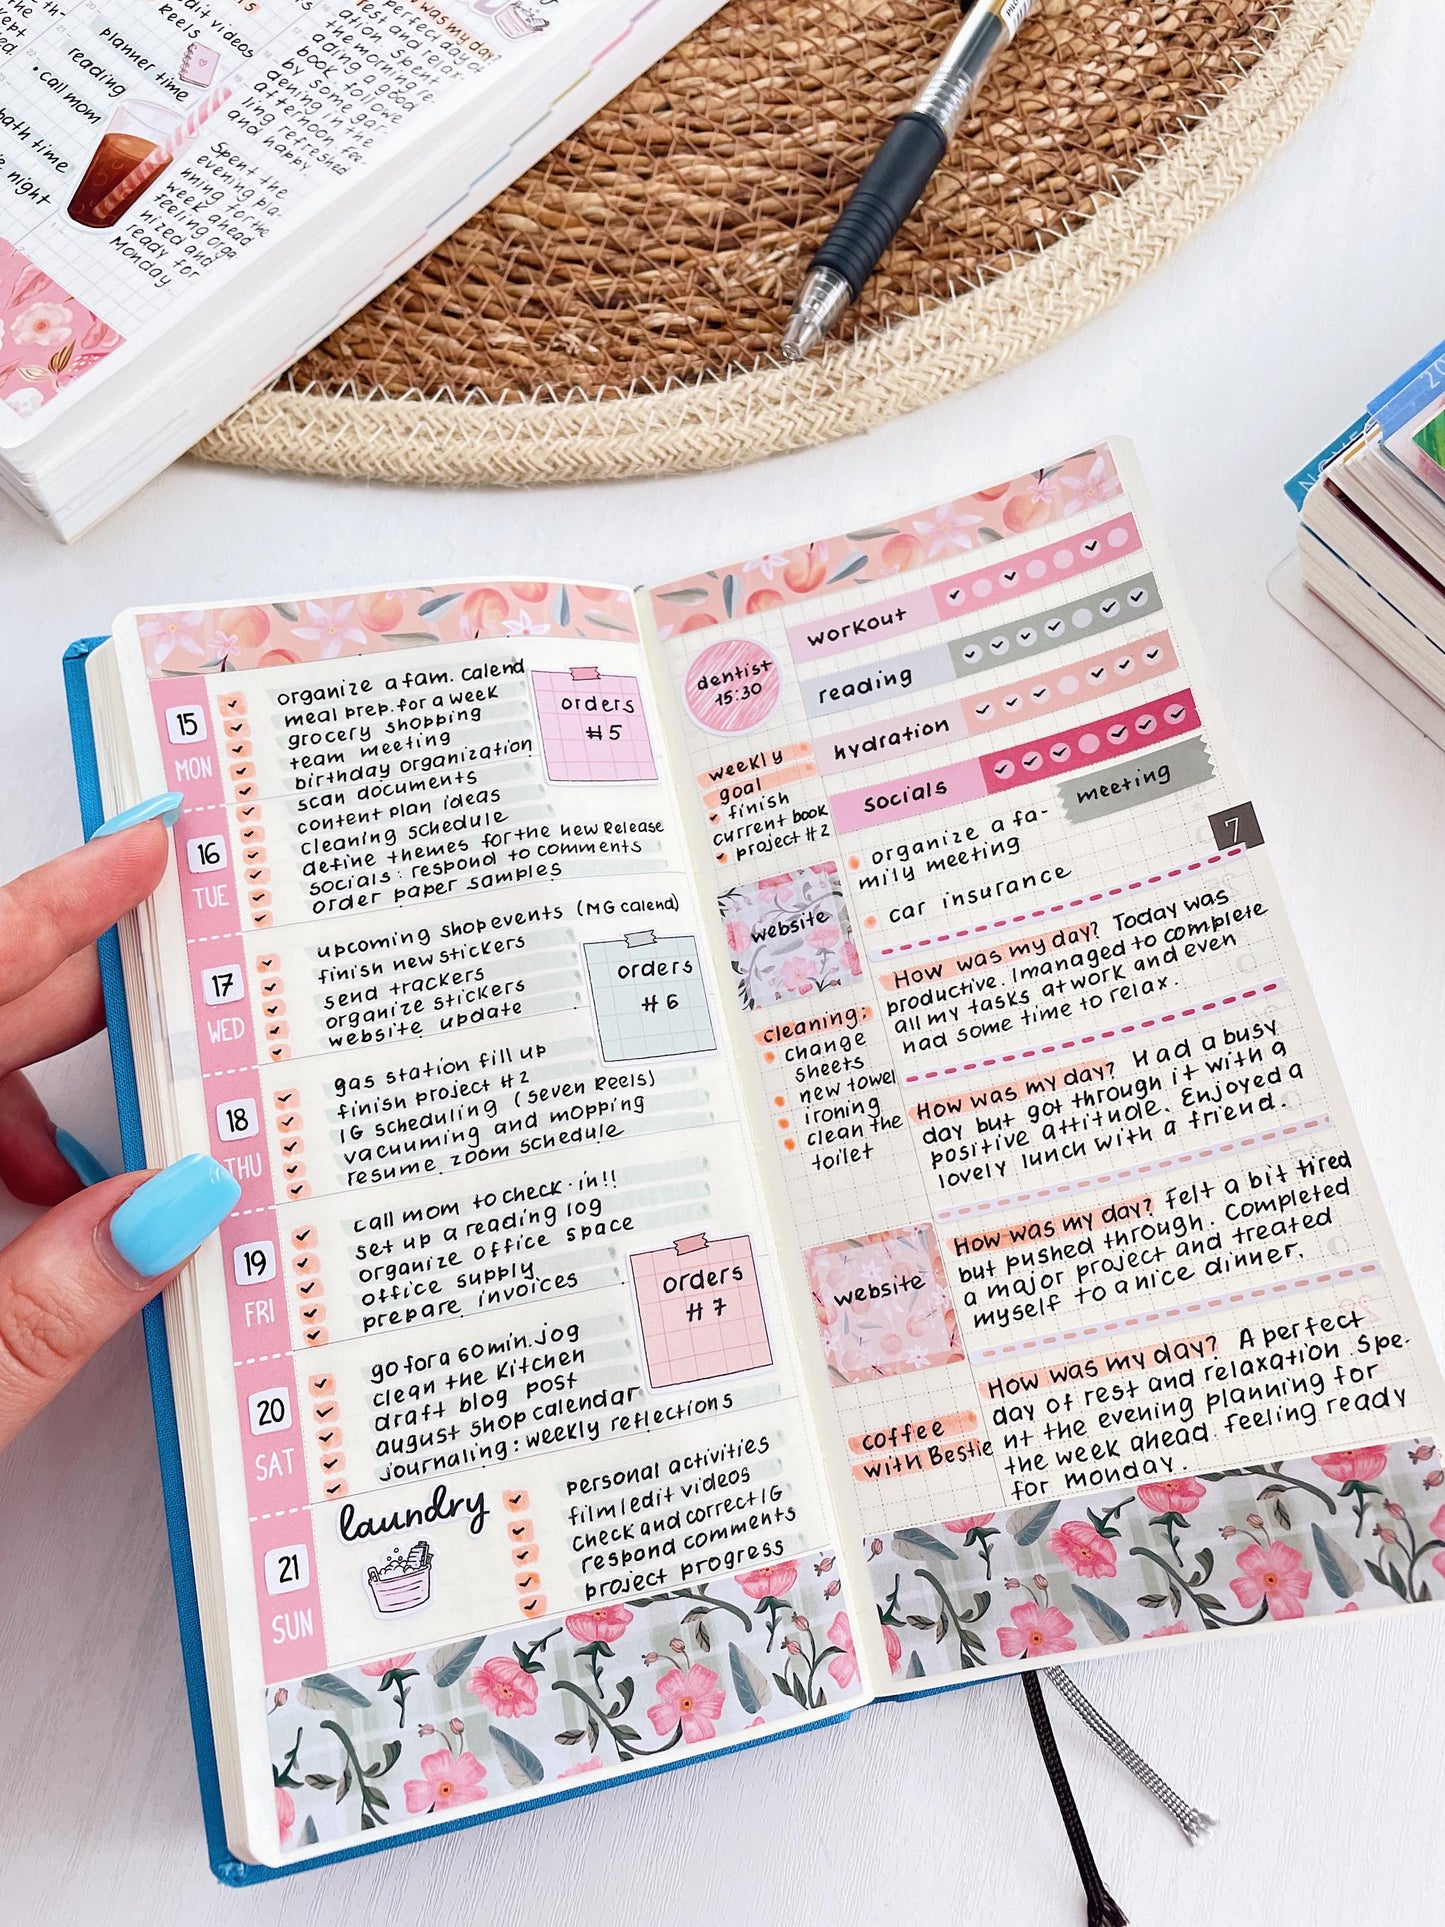 planner time
reading
• call mom
bath time
night
edit videos
Reels
was my day?
perfect day of
rest and relax-
ation. Spent
the morning re-
ading a good
book followe
by some gar-
dening in the
afternoon. Fee-
ling refreshed
and happy.
Spent the
evening pla-
nning for the
week ahead
feeling orga
nized and
ready for
Monday.
15
MON
organize a fam. Calend
meal prep. for a week
grocery shopping
team meeting
birthday organization
scan documents
orders
#5
16
TUE
content plan ideas
cleaning schedule
define themes for the new Release
socials: respond to comments
order paper samples
17
WED
upcoming shop events (MG calend)
finish new stickers
send trackers
organize stickers
website update
orders
#6
18
THU
gas station fill up
finish project #2
IG scheduling (seven Reels)
vacuuming and mopping
resume zoom schedule
19
FRI
call mom to check-in!!
set up a reading log
organize office space
office supply
prepare invoices
orders
#7
20
SAT
go for a 60 min. jog
clean the kitchen
draft blog post
august shop calendar
journaling: weekly reflections
21
SUN
laundry
personal activities
film/edit videos
check and correct IG
respond comments
project progress
dentist
15:30
workout
reading
hydration
socials
weekly
goal
finish
current book
project #2
meeting
organize a fa-
mily meeting
car insurance
7
website
cleaning:
change
sheets
new towel
ironing
clean the
toilet
website
coffee
with Bestie
How was my day? Today was
productive. I managed to complete
all my tasks at work and even
had some time to relax.
How was my day? Had a busy
day but got through it with a
positive attitude. Enjoyed a
lovely lunch with a friend.
How was my day? Felt a bit tired
but pushed through. Completed
a major project and treated
myself to a nice dinner.
How was my day? A perfect
day of rest and relaxation. Spe-
nt the evening planning for
the week ahead feeling ready
for monday.